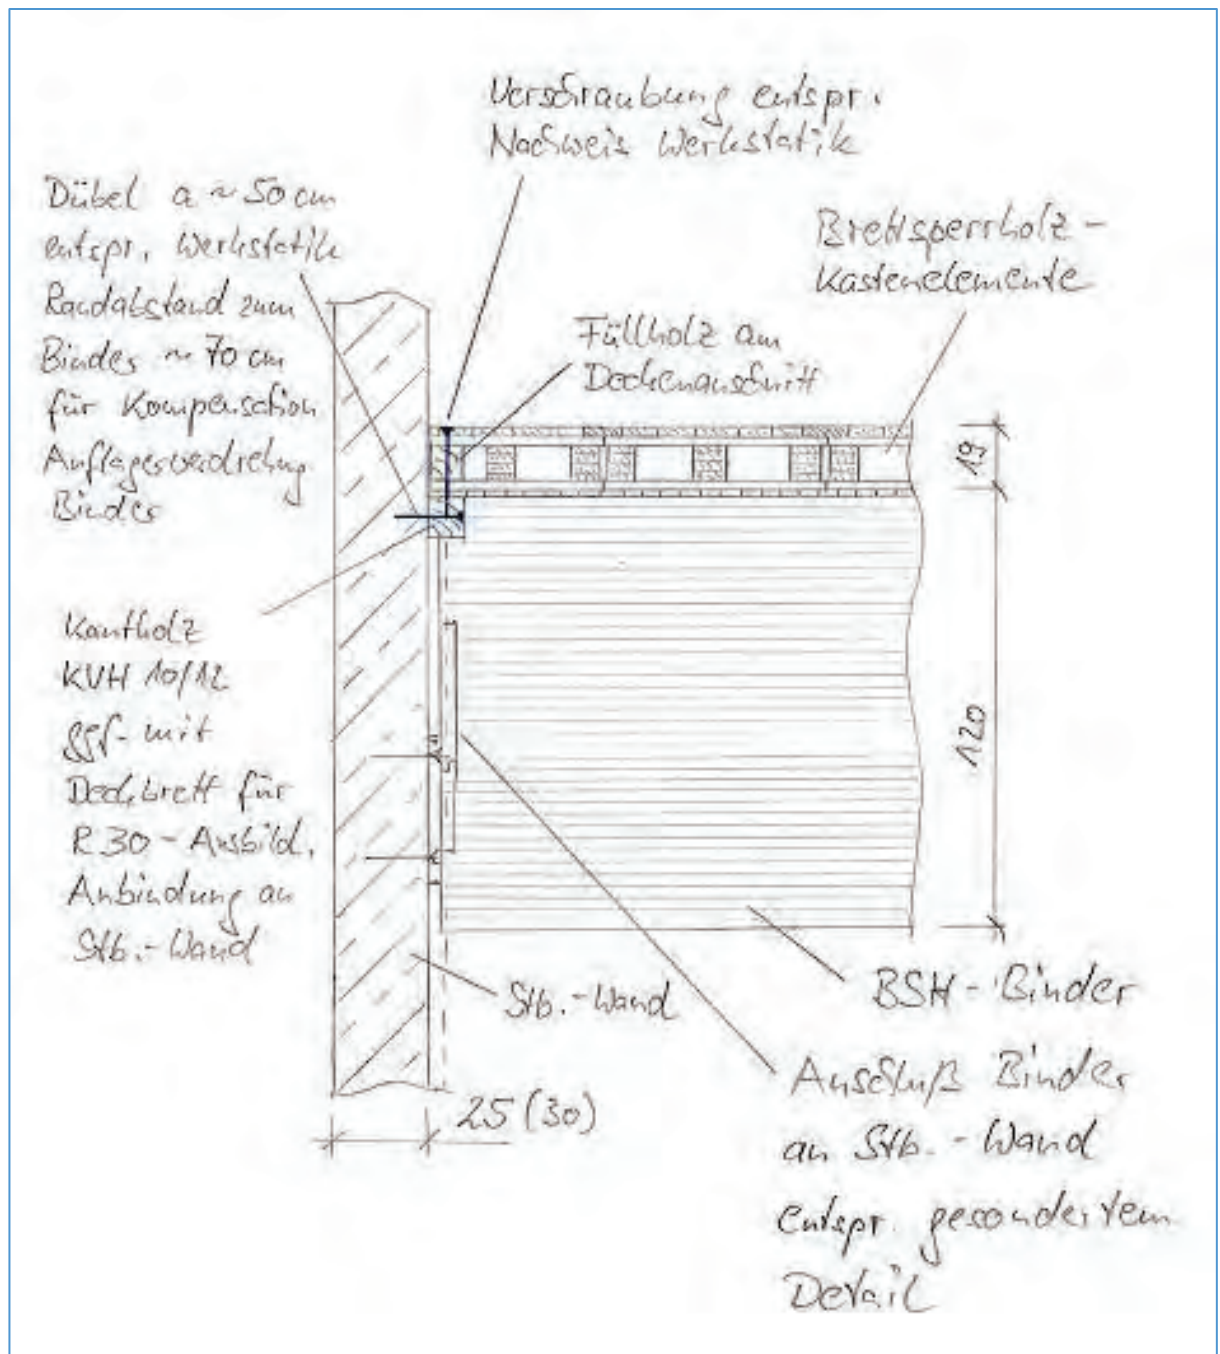 Verschraubung entspr.
Nachweis Werkstatik
Dübel a ~ 50 cm
entspr. Werkstatik
Randabstand zum
Binder ~ 70 cm
für Kompensation
Auflagerverdrehung
Binder
Brettsperrholz-
Kastenelemente
Füllholz am
Deckenanschnitt
19
Kantholz
KVH 10/12
ggf. mit
Deckbrett für
R 30 - Ausbild.
Anbindung an
Stb.-Wand
120
Stb.-Wand
BSH-Binder
25 (30)
Anschluß Binder
an Stb.-Wand
entspr. gesondertem
Detail